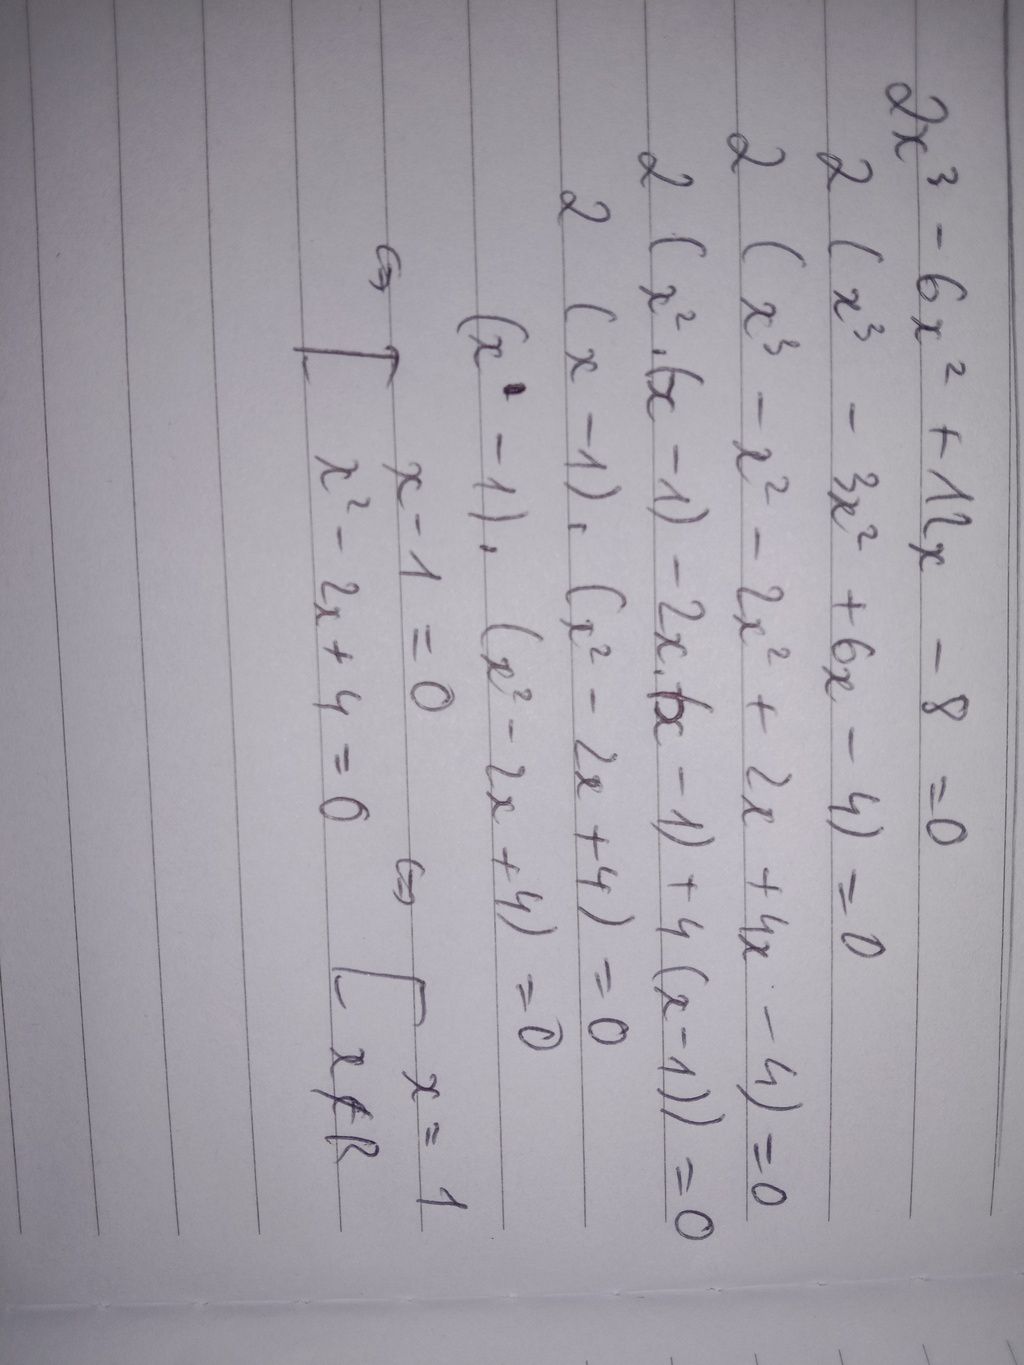 2x³ - 6x² + 12x - 8 = 0
2 (x³ - 3x² + 6x - 4) = 0
2 (x³ - x² - 2x² + 2x + 4x - 4) = 0
2 (x².(x - 1) - 2x.(x - 1) + 4(x - 1)) = 0
2 (x - 1). (x² - 2x + 4) = 0
(x - 1). (x² - 2x + 4) = 0
⇔ [ x - 1 = 0 ⇔ [ x = 1
x² - 2x + 4 = 0 x ∉ R